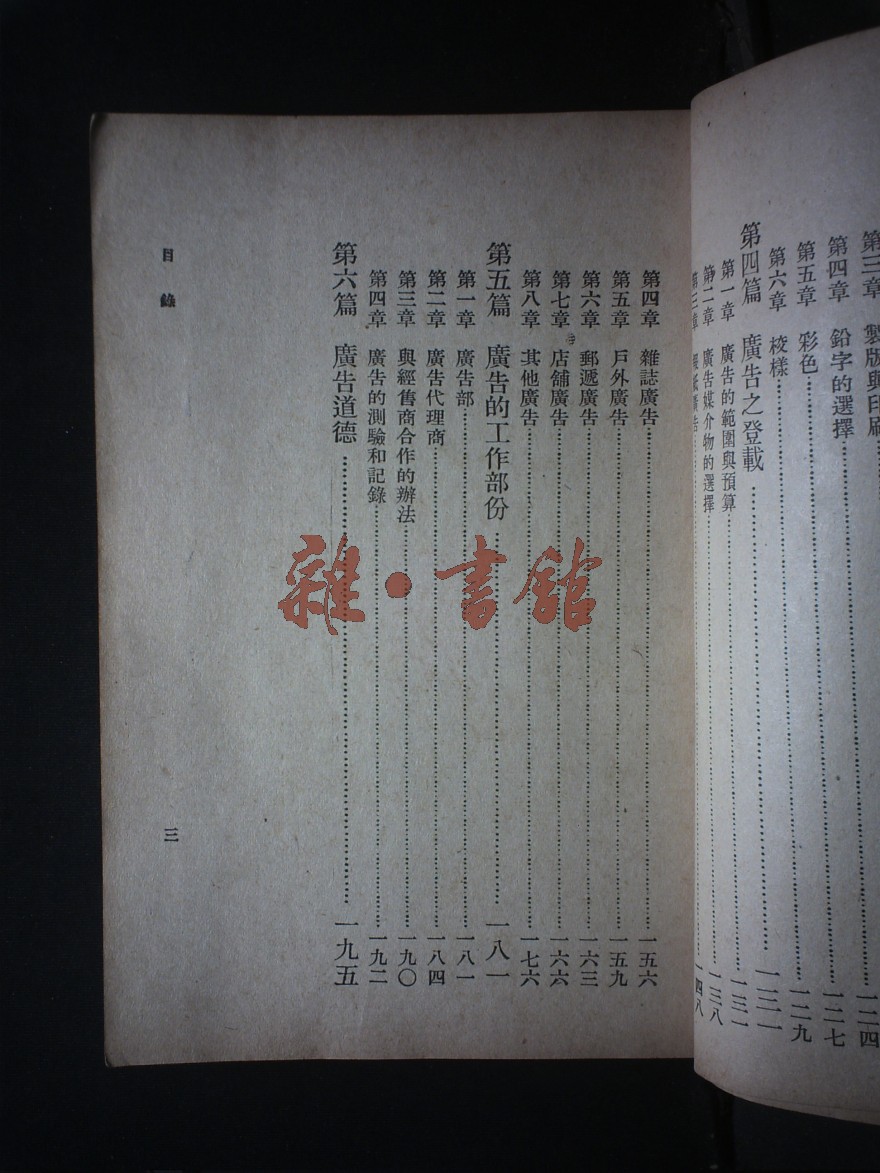 第三章 製版與印刷……一二四
第四章 鉛字的選擇……一二七
第五章 彩色……一二九
第六章 校樣
第四篇 廣告之登載……一三一
第一章 廣告的範圍與預算……一三一
第二章 廣告媒介物的選擇……一三八
第三章 報紙廣告……一四八
第四章 雜誌廣告……一五六
第五章 戶外廣告……一五九
第六章 郵遞廣告……一六三
第七章 店舖廣告……一六六
第八章 其他廣告……一七六
第五篇 廣告的工作部份……一八一
第一章 廣告部……一八一
第二章 廣告代理商……一八四
第三章 與經售商合作的辦法……一九〇
第四章 廣告的測驗和記錄……一九二
第六篇 廣告道德……一九五
目錄
三
雜·書館